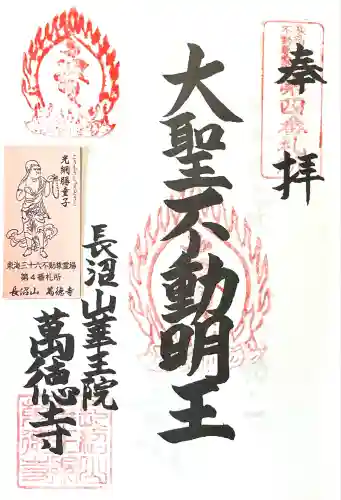 奉拝
大聖不動明王
長沼山華王院
萬徳寺
第四番札
光網勝童子
東海三十六不動尊霊場
第4番札所
長沼山 萬徳寺